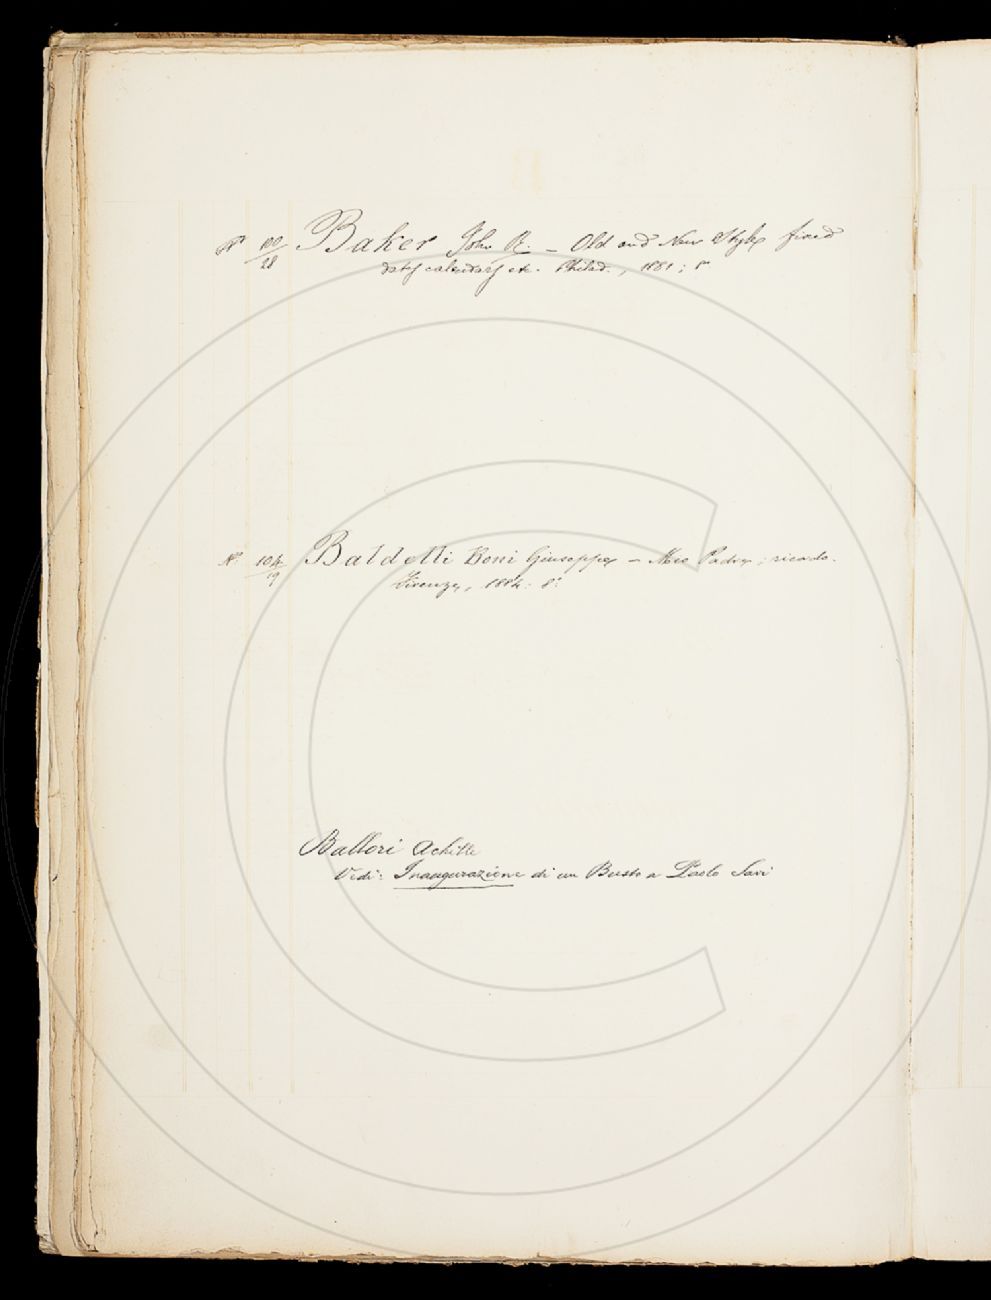 Nº 100/28 Baker John R. – Old and New Style fixed
dates calendars etc. Philad., 1881; 8º
Nº 104/19 Baldelli Boni Giuseppe – Mio Padre; ricordo.
Firenze, 1884. 8º
Ballori Achille
Vedi: Inaugurazione di un Busto a Paolo Savi